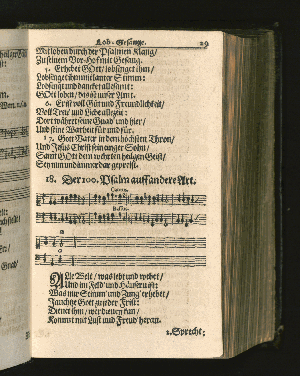 Lob-Gesänge. 29
Mit loben durch der Psalmen Klang/
Zu seinem Vor-Hof mit Gesang.
5. Erhebet GOtt/ lobsinget ihm/
Lobsinget ihm mit lauter Stimm:
Lobsingt und dancket allesamt:
GOtt loben/ das ist unser Amt.
6. Er ist voll Güt und Freundlichkeit/
Voll Treu/ und Lieb allezeit:
Dort währet seine Gnad und hier/
Und seine Warheit für und für.
7. Gott Vater in dem höchsten Thron/
Und JEsus Christ sein einger Sohn/
Samt GOtt dem wehrten heilgen Geist/
Sey nun und immerdar gepreist.
18. Der 100. Psalm auff andere Art.
Cantus.
Bassus.
ALle Welt/ was lebt und webet/
Und in Feld und Häuser ist:
Was nur Stimm und Zung erhebet/
Jauchtze Gott zu jeder Frist:
Dienet ihm/ wer dienen kan/
Kommt mit Lust und Freud heran.
2. Sprecht: